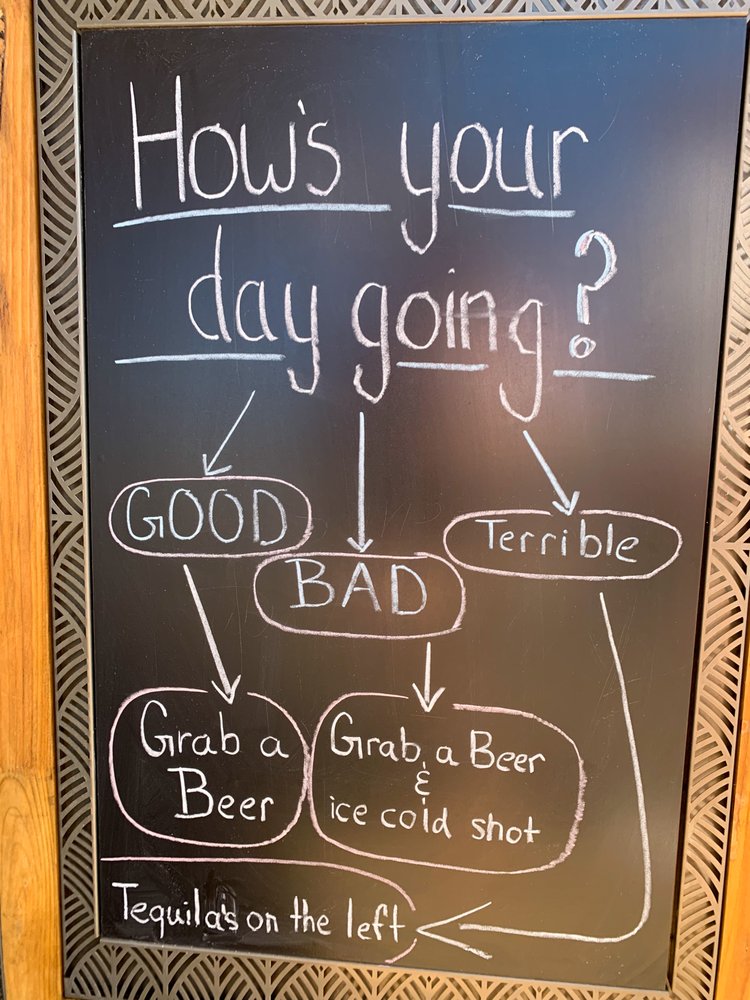 How's your
day going?
GOOD
BAD
Terrible
Grab a
Beer
Grab a Beer
&
ice cold shot
Tequila's on the left